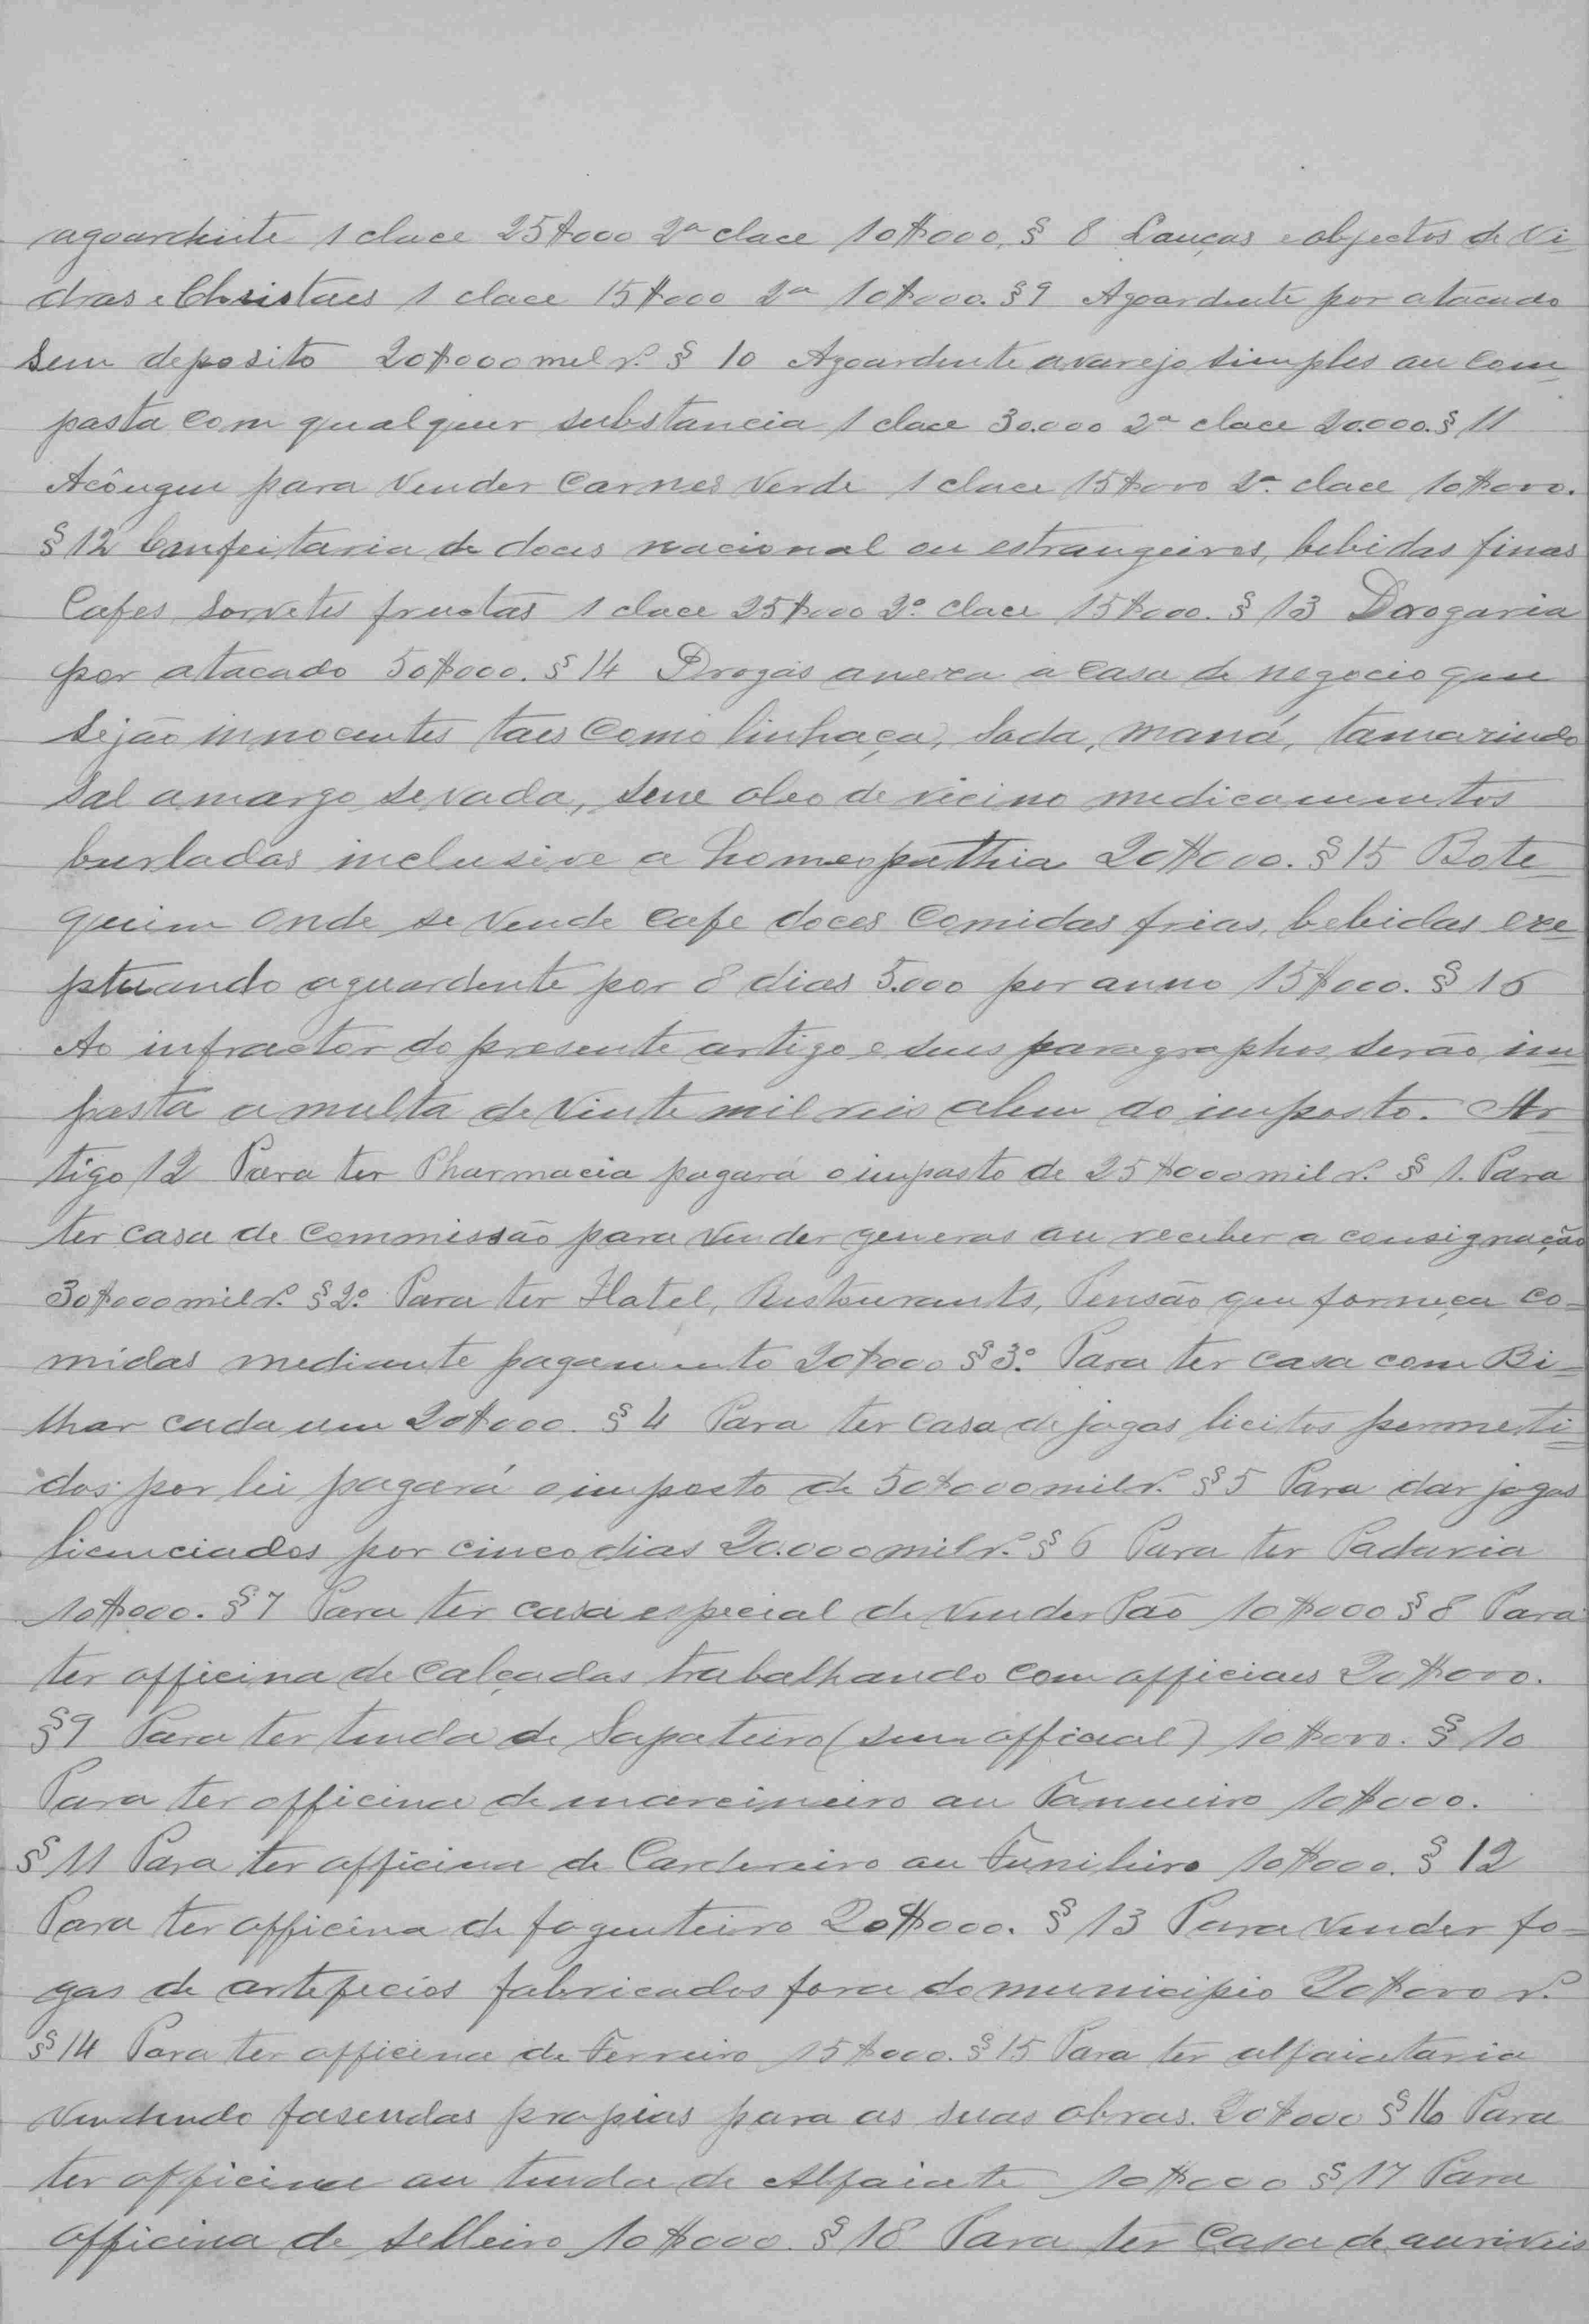 agoardente 1 clace 25$000 2ª clace 10$000, § 8 Lauças e objectos de Vi-
dras e Christaes 1 clace 15$000 2ª 10$000. § 9 Agoardente por atacado
sem deposito 20$000 mil r. § 10 Agoardente a varejo simples au com-
pasta com qualquer substancia 1 clace 30.000 2ª clace 20.000. § 11
Acôugue para Vender Carnes Verde 1 clace 15$000 2ª clace 10$000.
§ 12 Confeitaria de doces nacional ou estrangeiros, bebidas finas
Cafes, sorvetes fructas 1 clace 25$000 2ª clace 15$000. § 13 Drogaria
por atacado 50$000. § 14 Drogas anexa a casa de negocio que
sejão innocentes taes como linhaça, soda, maná, tamarindo
sal amargo sevada, sene oleo de ricino medicamentos
burladas inclusive a homeopathia 20$000. § 15 Bote-
quim onde se vende cafe doces comidas frias, bebidas exe-
ptuando aguardente por 8 dias 5.000 por anno 15$000. § 16
Ao infractor do presente artigo e seus paragraphos serão im-
posta a multa de Vinte mil reis alem do imposto. Ar-
tigo 12 Para ter Pharmacia pagará o imposto de 25$000 mil r. § 1. Para
ter casa de Commissão para vender generos au receber a consignação
30$000 mil r. § 2º Para ter Hatel, Restaurants, Pensão que forneça co-
midas mediante pagamento 20$000 § 3º Para ter casa com Bi-
lhar cada um 20$000. § 4 Para ter casa de jogas licitos permeti-
dos por lei pagará o imposto de 50$000 mil r. § 5 Para dar jogas
licenciados por cinco dias 20.000 mil r. § 6 Para ter Padaria
10$000. § 7 Para ter casa especial de vender Pão 10$000 § 8 Para
ter officina de calçadas trabalhando com officiaes 20$000.
§ 9 Para ter tenda de Sapateiro (sem official) 10$000. § 10
Para ter officina de marcineiro au Tanueiro 10$000.
§ 11 Para ter officina de Cardereiro au Funileiro 10$000. § 12
Para ter officina de fogueteiro 20$000. § 13 Para vender fo-
gas de artefecios fabricados fora do municipio 20$000 r.
§ 14 Para ter officina de Ferreiro 15$000. § 15 Para ter alfaiataria
vendendo fasendas propias para as suas obras. 20$000 § 16 Para
ter officina au tenda de Alfaiate 10$000 § 17 Para
officina de selleiro 10$000. § 18 Para ter Casa de auriveis